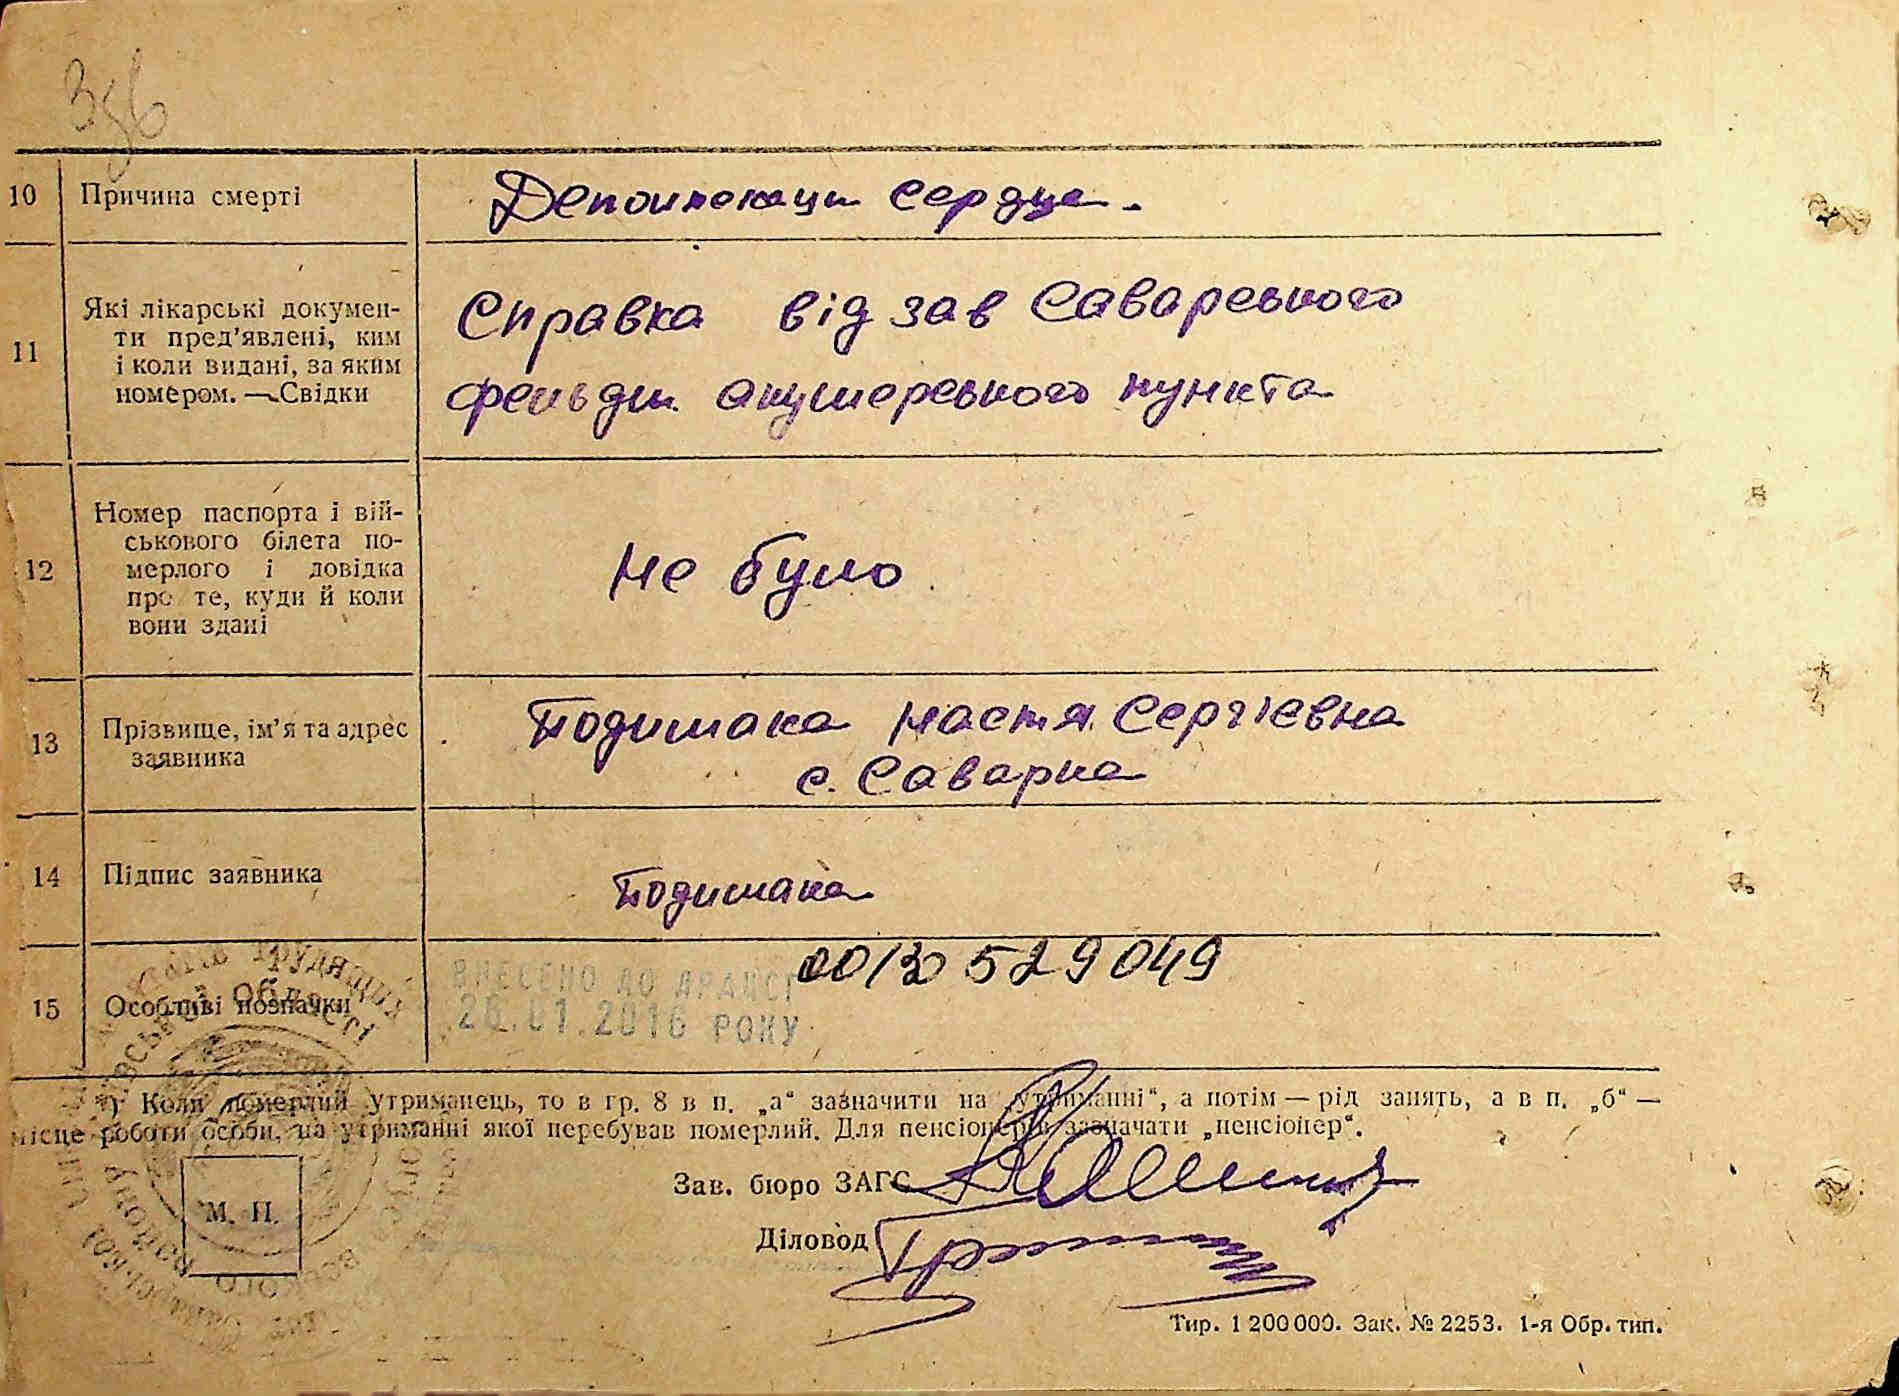 356
10 Причина смерті
Декомпенсаци сердца.
11 Які лікарські докумен-
ти пред'явлені, ким
і коли видані, за яким
номером. — Свідки
Справка від зав Саварського
фельдш. акушерського пункта
12 Номер паспорта і вій-
ськового білета по-
мерлого і довідка
про те, куди й коли
вони здані
не було
13 Прізвище, ім'я та адрес
заявника
Настя Сергієвна
с. Саварка
14 Підпис заявника
15 Особливі позначки
ВНЕСЕНО ДО ДРАЦСГ
26.01.2016 РОКУ
00130529049
*) Коли померлий утриманець, то в гр. 8 в п. „а“ зазначити на „утриманні“, а потім — рід занять, а в п. „б“ —
місце роботи особи, на утриманні якої перебував померлий. Для пенсіонерів зазначати „пенсіонер“.
Зав. бюро ЗАГС
М. П.
Діловод
Тир. 1 200 000. Зак. № 2253. 1-я Обр. тип.